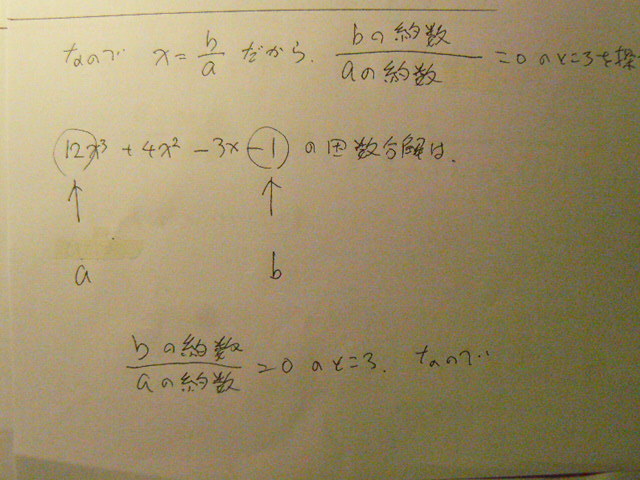 なので x = b/a だから、 bの約数/aの約数 =0 のところを探
12x³ + 4x² - 3x - 1 の因数分解は、
↑ ↑
a b
bの約数/aの約数 =0 のところ、なので